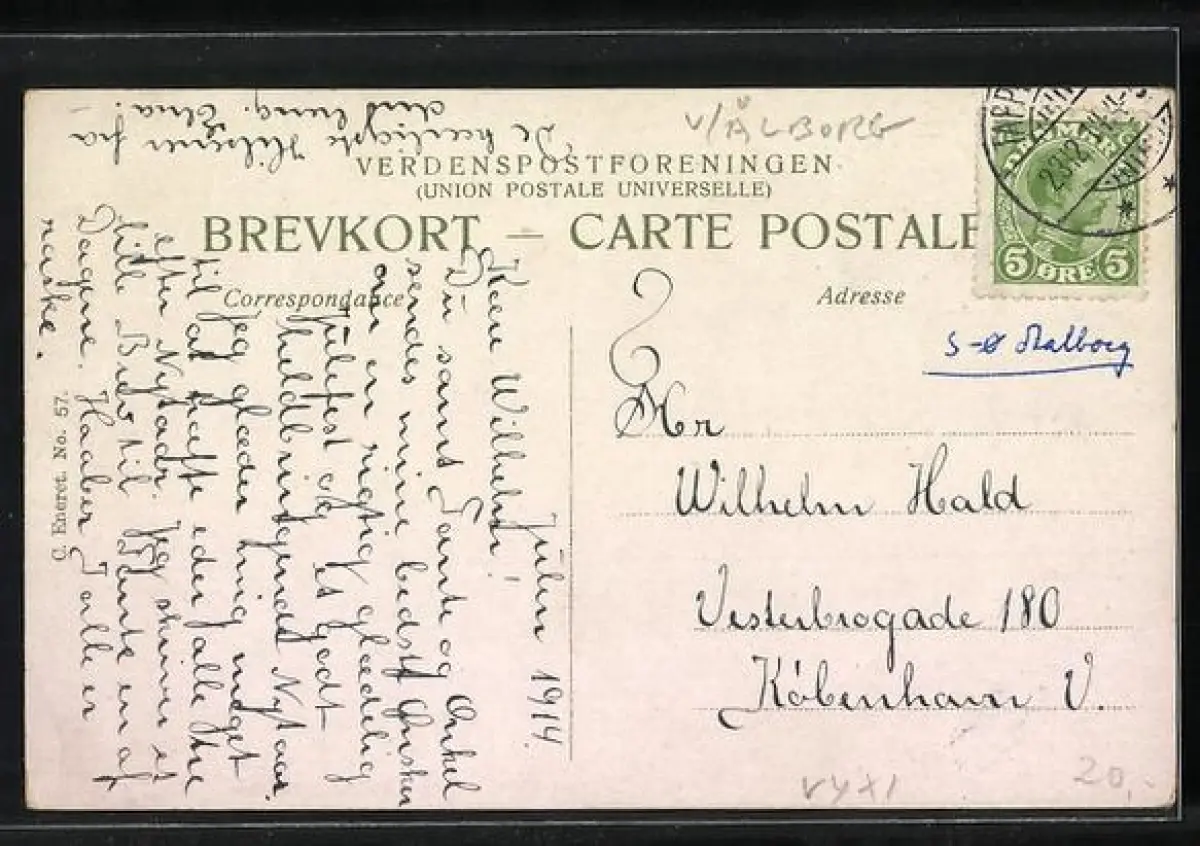 v/ ÅLBORG
VERDENSPOSTFORENINGEN
(UNION POSTALE UNIVERSELLE)
BREVKORT — CARTE POSTALE
Correspondance
Adresse
DANMARK
5 ØRE 5
23.12.14
S-Ø Aalborg
Hr
Wilhelm Hald
Vesterbrogade 180
København V.
Julen 1914.
Kære Wilhelm!
Du samt Tante og Onkel
sendes mine bedste Ønsker
om en rigtig glædelig
Julefest og et godt
heldbringende Nytaar.
Jeg glæder mig meget
til at træffe eder alle Tre
efter Nytaar. Jeg skriver et
lille Brev til Tante en af
Dagene. Haaber I alle er
raske.
De kærligste Hilsener fra
din
O. Eneret. No. 57.
20,-